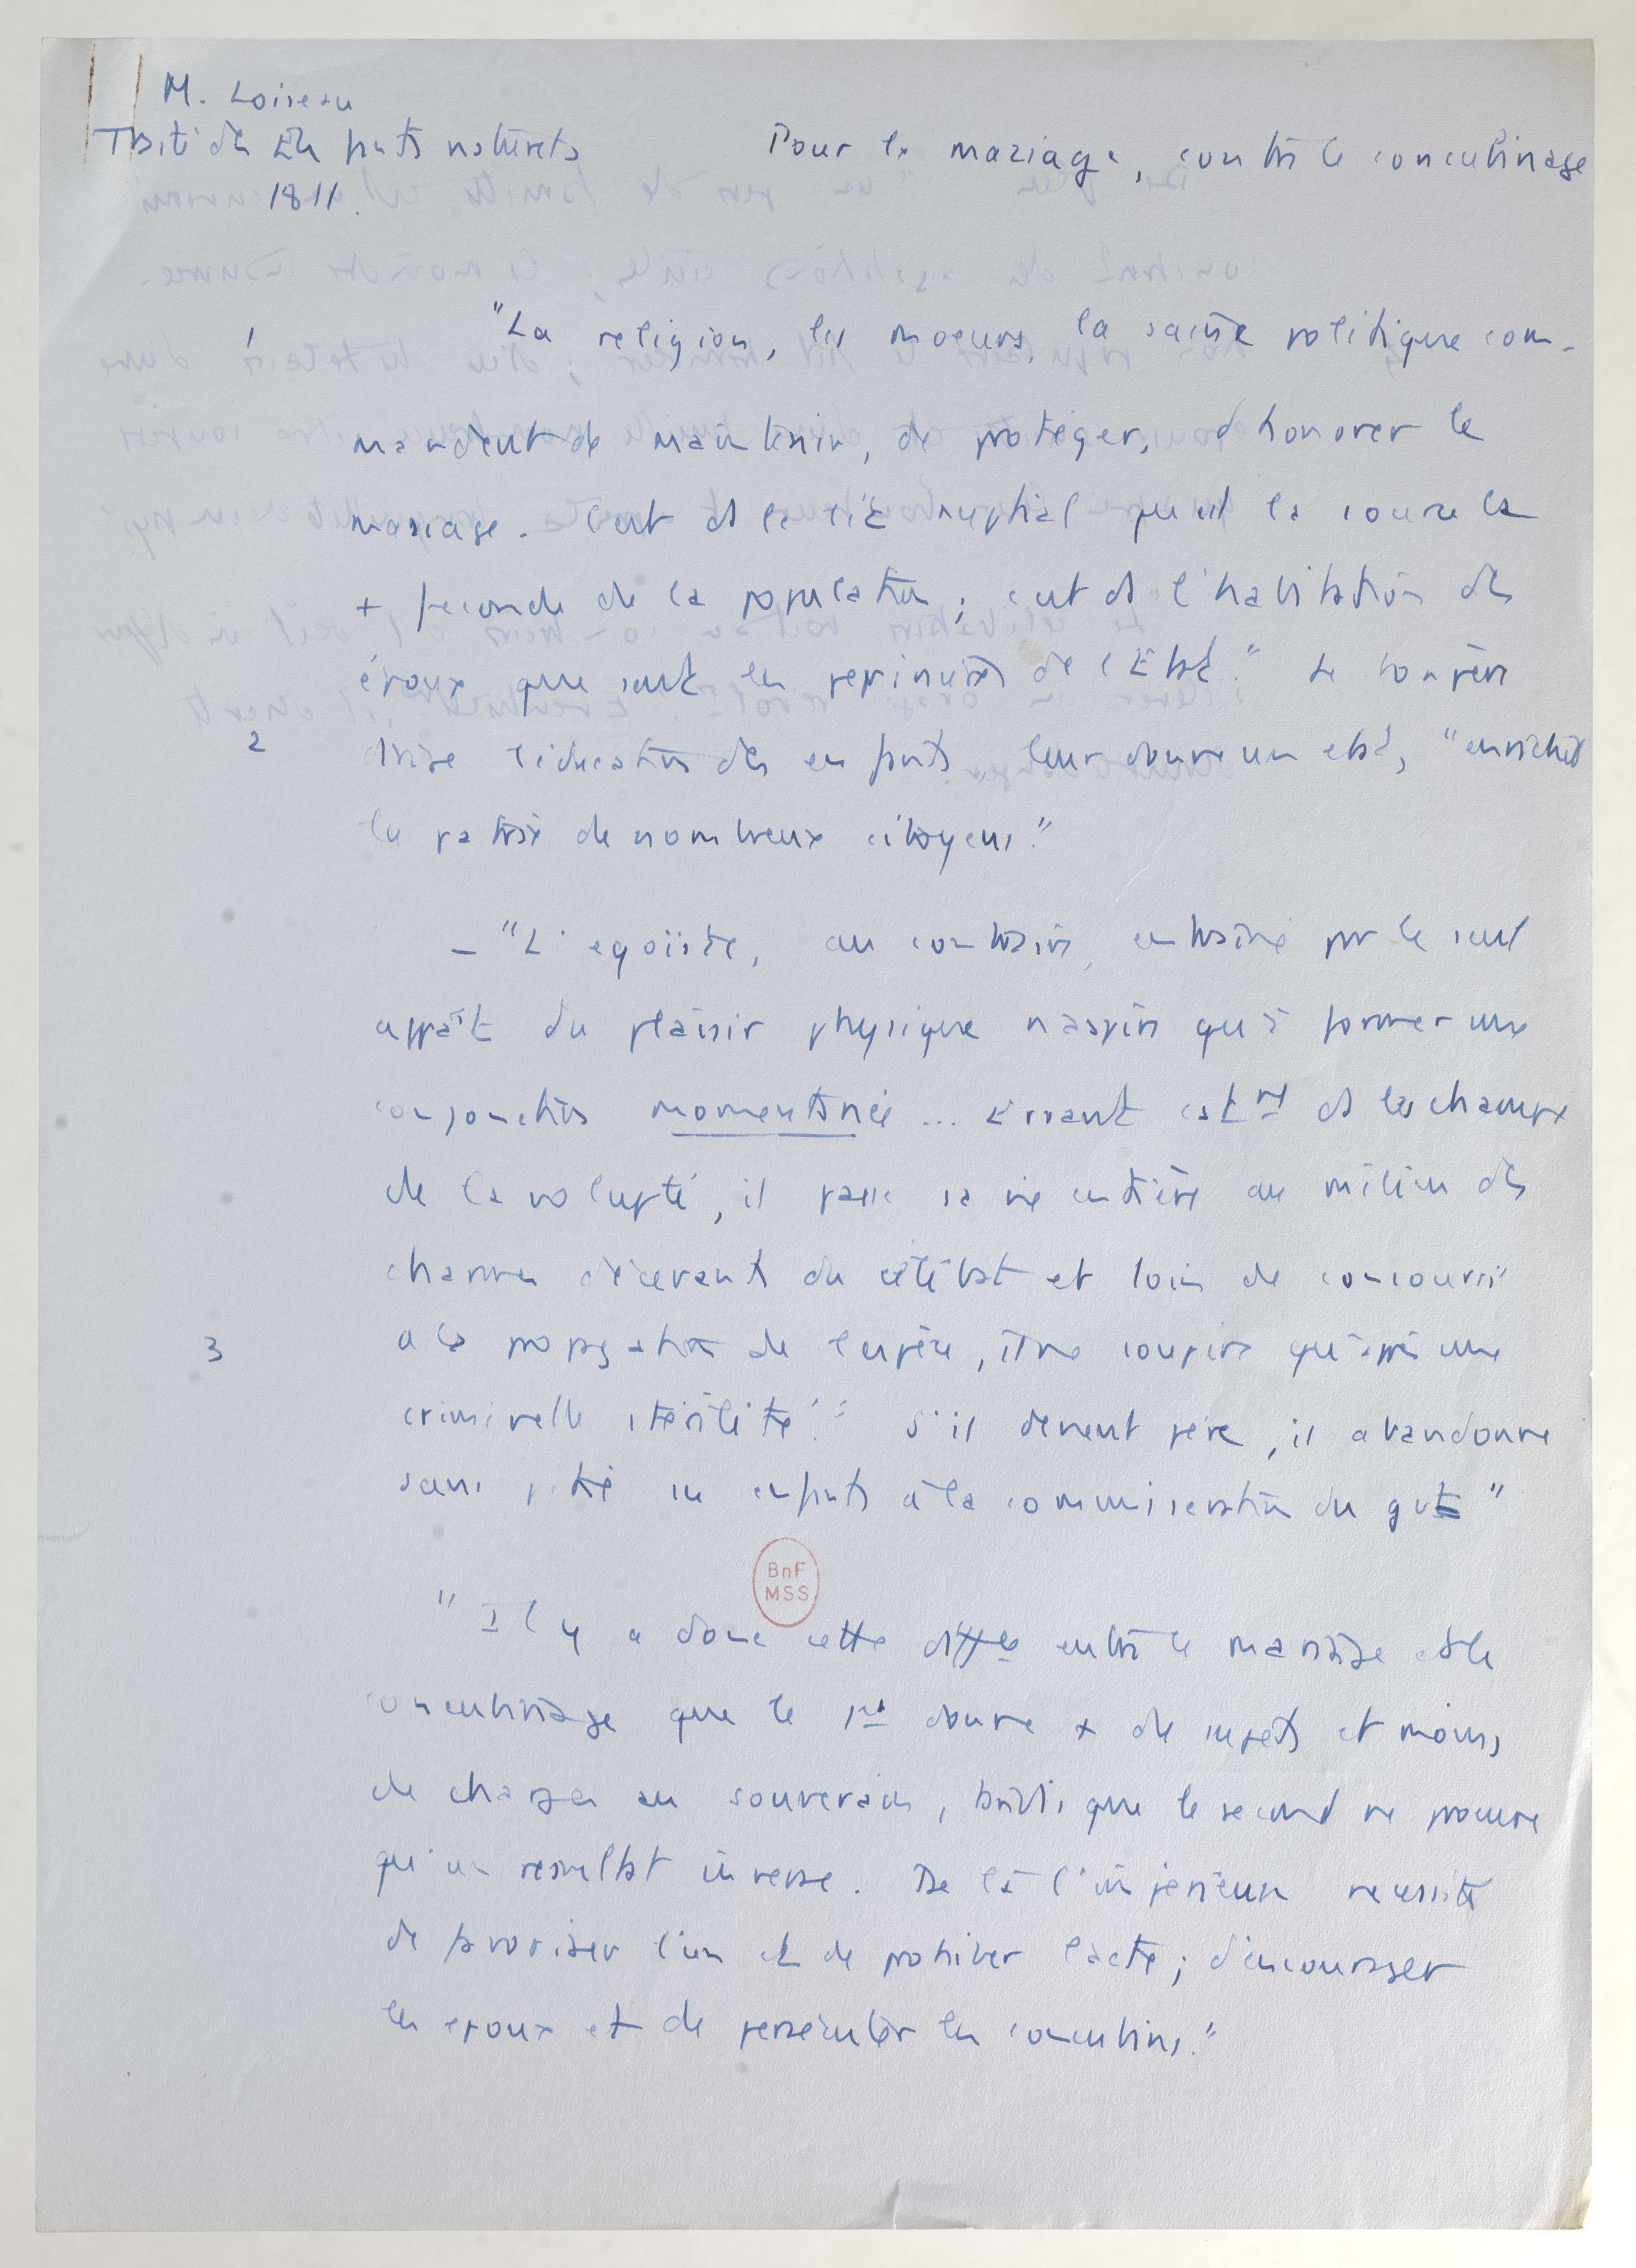 M. Loiseau
Traité des Enfants naturels
1811.
Pour le mariage, contre le concubinage
1 "La religion, les moeurs, la saine politique com-
mandent de maintenir, de protéger, d'honorer le
mariage. C'est ds le lit nuptial qu'est la source la
+ féconde de la population ; c'est ds l'habitation des
époux que sont les pépinières de l'Etat." Le bon père
2 dirige l'éducation des enfants, leur donne un état, "enrichit
la patrie de nombreux citoyens."
- "L'égoïste, au contraire, entraîné par le seul
appât du plaisir physique n'aspire qu'à former une
conjonction momentanée ... Errant cstmt ds les champs
de la volupté, il passe sa vie entière au milieu des
charmes décevants du célibat et loin de concourir
3 à la propagation de l'espèce, il ne soupire qu'après une
criminelle stérilité." S'il devient père, il abandonne
sans pitié ses enfants à la commisération du gvt"
BnF
MSS
"Il y a donc cette différence entre le mariage et le
concubinage que le 1er donne + de sujets et moins
de charges au souverain, tandis que le second ne procure
qu'un résultat inverse. De là l'impérieuse nécessité
de favoriser l'un et de prohiber l'autre ; d'encourager
les époux et de persécuter les concubins."